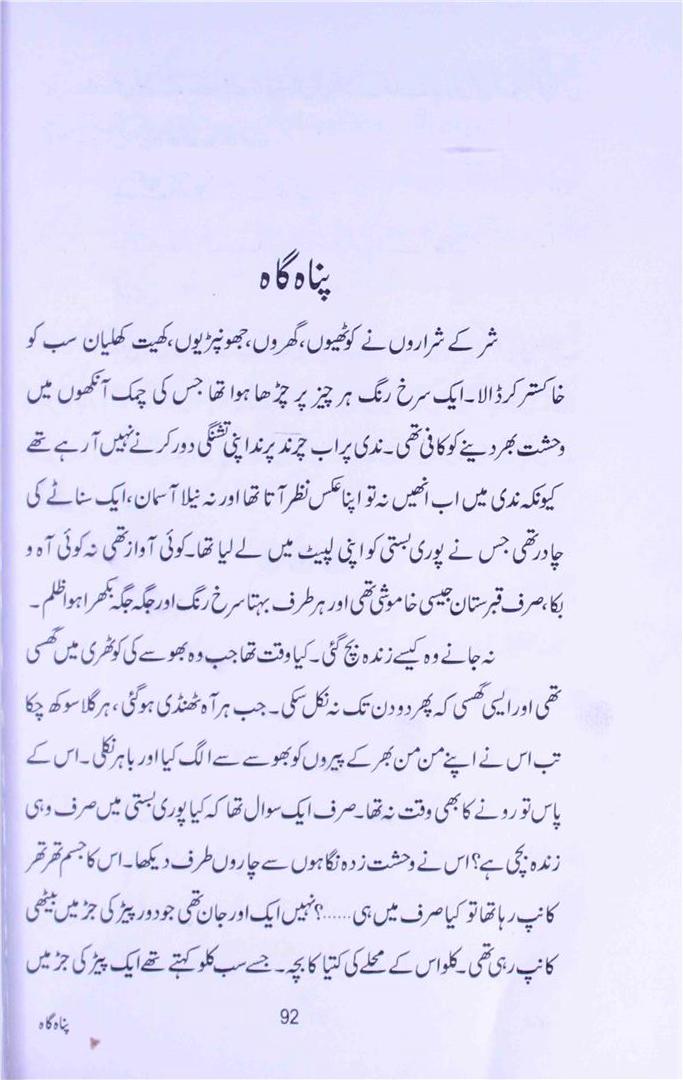 پناہ گاہ
شر کے شراروں نے کوٹھیوں، گھروں، جھونپڑیوں، کھیت کھلیان سب کو
خاکستر کرڈالا۔ ایک سرخ رنگ ہر چیز پر چڑھا ہوا تھا جس کی چمک آنکھوں میں
وحشت بھر دینے کو کافی تھی۔ ندی پر اب چرند پرند اپنی تشنگی دور کرنے نہیں آ رہے تھے
کیونکہ ندی میں اب انھیں نہ تو اپنا عکس نظر آتا تھا اور نہ نیلا آسمان، ایک سناٹے کی
چادر تھی جس نے پوری بستی کو اپنی لپیٹ میں لے لیا تھا۔ کوئی آواز تھی نہ کوئی آہ و
بکا، صرف قبرستان جیسی خاموشی تھی اور ہر طرف بہتا سرخ رنگ اور جگہ جگہ بکھرا ہوا ظلم۔
نہ جانے وہ کیسے زندہ بچ گئی۔ کیا وقت تھا جب وہ بھوسے کی کوٹھری میں گھسی
تھی اور ایسی گھسی کہ پھر دو دن تک نہ نکل سکی۔ جب ہر آہ ٹھنڈی ہو گئی، ہر گلا سوکھ چکا
تب اس نے اپنے من من بھر کے پیروں کو بھوسے سے الگ کیا اور باہر نکلی۔ اس کے
پاس تو رونے کا بھی وقت نہ تھا۔ صرف ایک سوال تھا کہ کیا پوری بستی میں صرف وہی
زندہ بچی ہے؟ اس نے وحشت زدہ نگاہوں سے چاروں طرف دیکھا۔ اس کا جسم تھر تھر
کانپ رہا تھا تو کیا صرف میں ہی......؟ نہیں ایک اور جان تھی جو دور پیڑ کی جڑ میں بیٹھی
کانپ رہی تھی۔ کلو اس کے محلے کی کتیا کا بچہ۔ جسے سب کلو کہتے تھے ایک پیڑ کی جڑ میں
92
پناہ گاہ